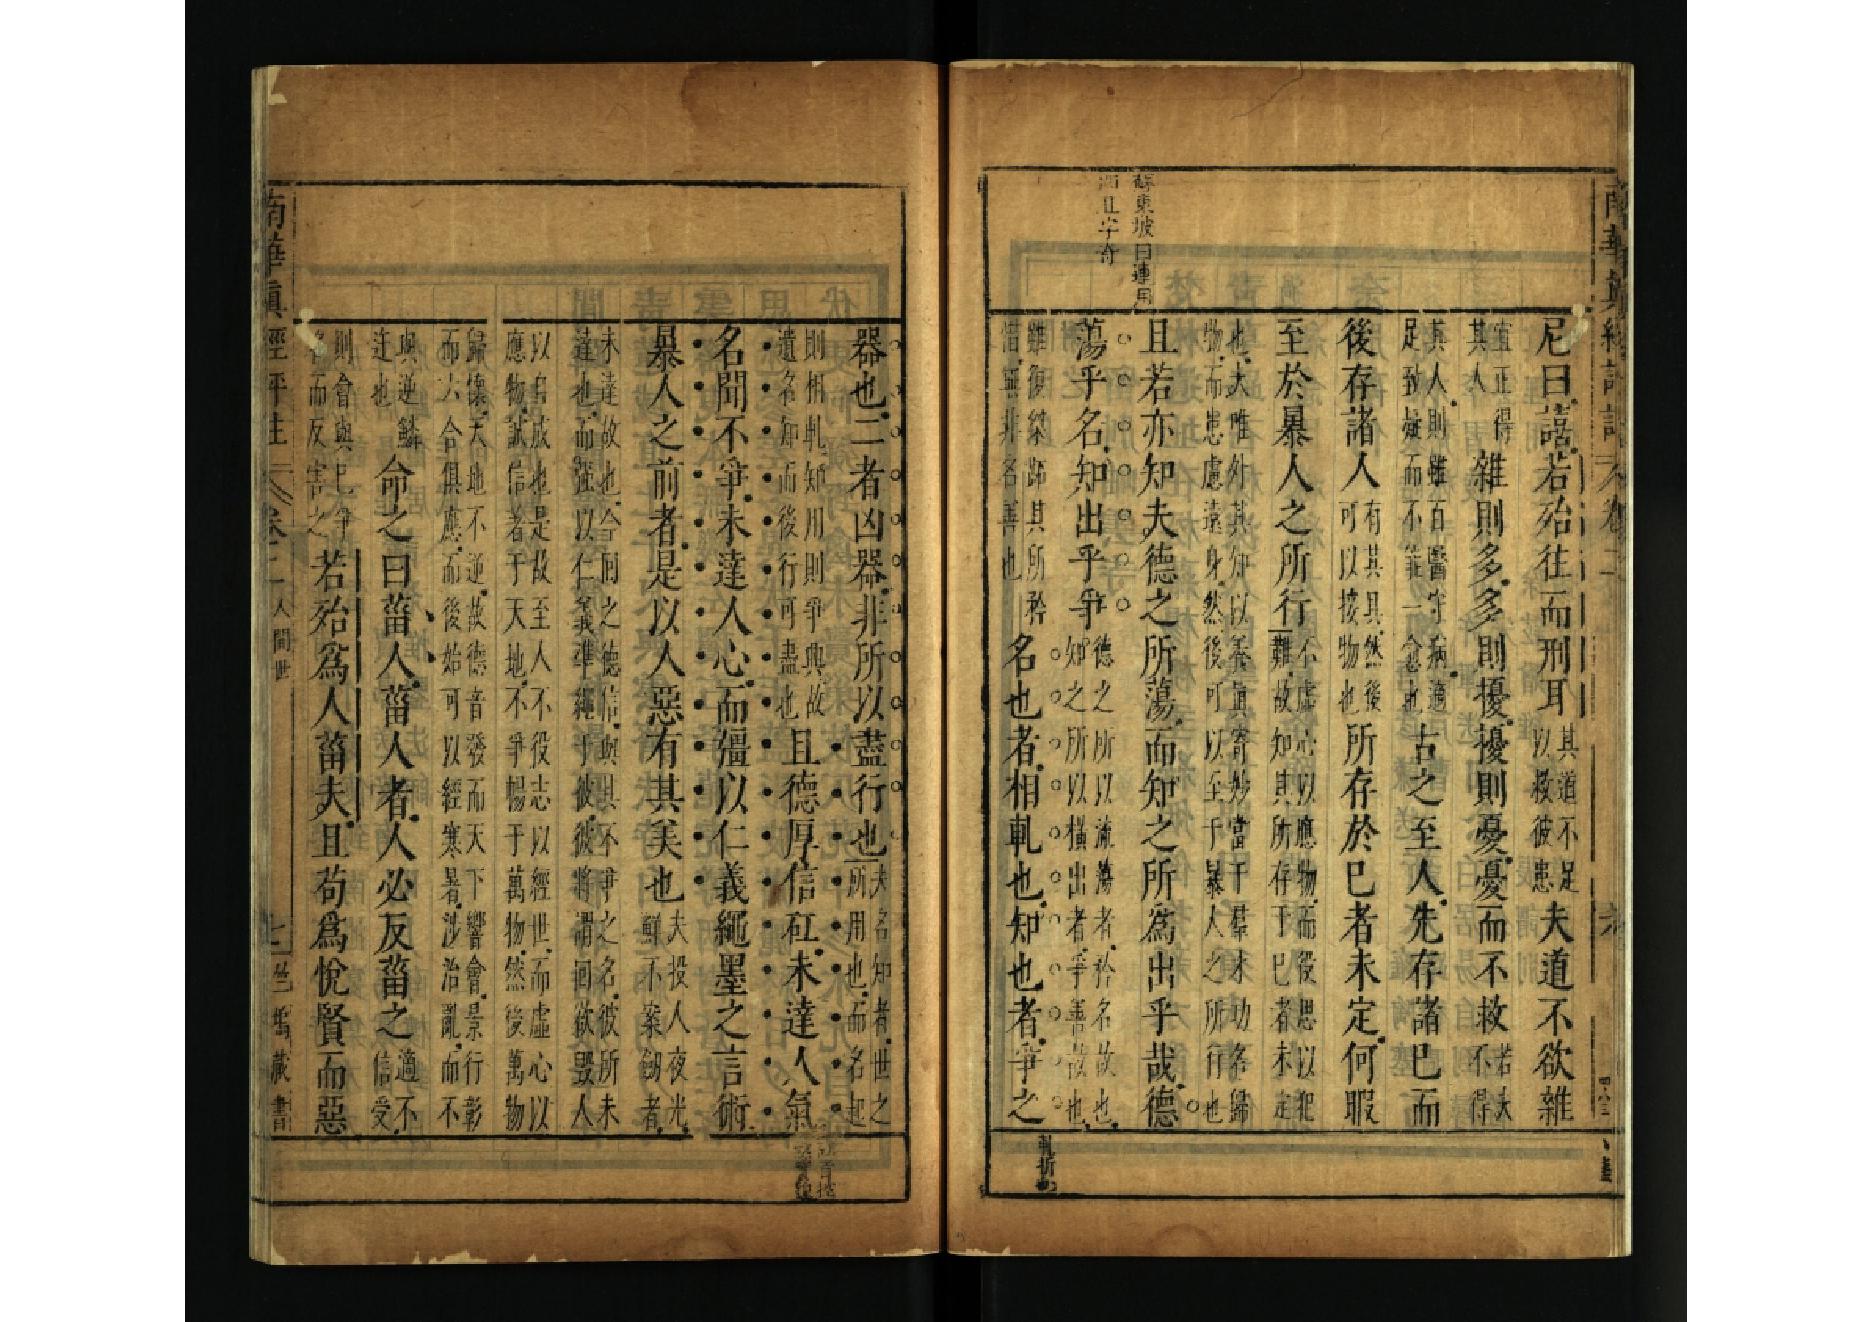 南華真經評註 卷二
蘇東坡曰連用
四且字奇
尼曰譆若殆往而刑耳其道不足以救彼患夫道不欲雜
宜正得其人雜則多多則擾擾則憂憂而不救若夫不得
其人則雖百醫守病適足致疑而不能一愈也古之至人先存諸已而
後存諸人有其具然後可以接物也所存於已者未定何暇
至於暴人之所行不虛心以應物而役思以犯難故知其所存于已者未定
也夫唯外其知以養真寄妙當于羣才功名歸物而患慮遠身然後可以至于暴人之所行也
且若亦知夫德之所蕩而知之所爲出乎哉德
蕩乎名知出乎爭德之所以流蕩者矜名故也知之所以橫出者爭善故也
雖復桀跖其所矜惜無非名善也名也者相軋也知也者爭之
器也二者凶器非所以盡行也夫名知者世之所用也而名起
則相軋知用則爭興故遺名知而後行可盡也且德厚信矼未達人氣
名聞不爭未達人心而彊以仁義繩墨之言術
暴人之前者是以人惡有其美也夫投人夜光鮮不案劒者
未達故也今回之德信與其不爭之名彼所未達也而彊以仁義準繩于彼彼將謂回欲毀人
以自成也是故至人不役志以經世而虛心以應物誠信著于天地不爭暢于萬物然後萬物
歸懷天地不逆故德音發而天下響會景行彰而六合俱應而後始可以經寒暑涉治亂而不
與逆鱗迕也命之曰菑人菑人者人必反菑之適不信受
則會與已爭名而反害之若殆爲人菑夫且苟爲悅賢而惡
南華真經評註 卷二 人間世 藏書